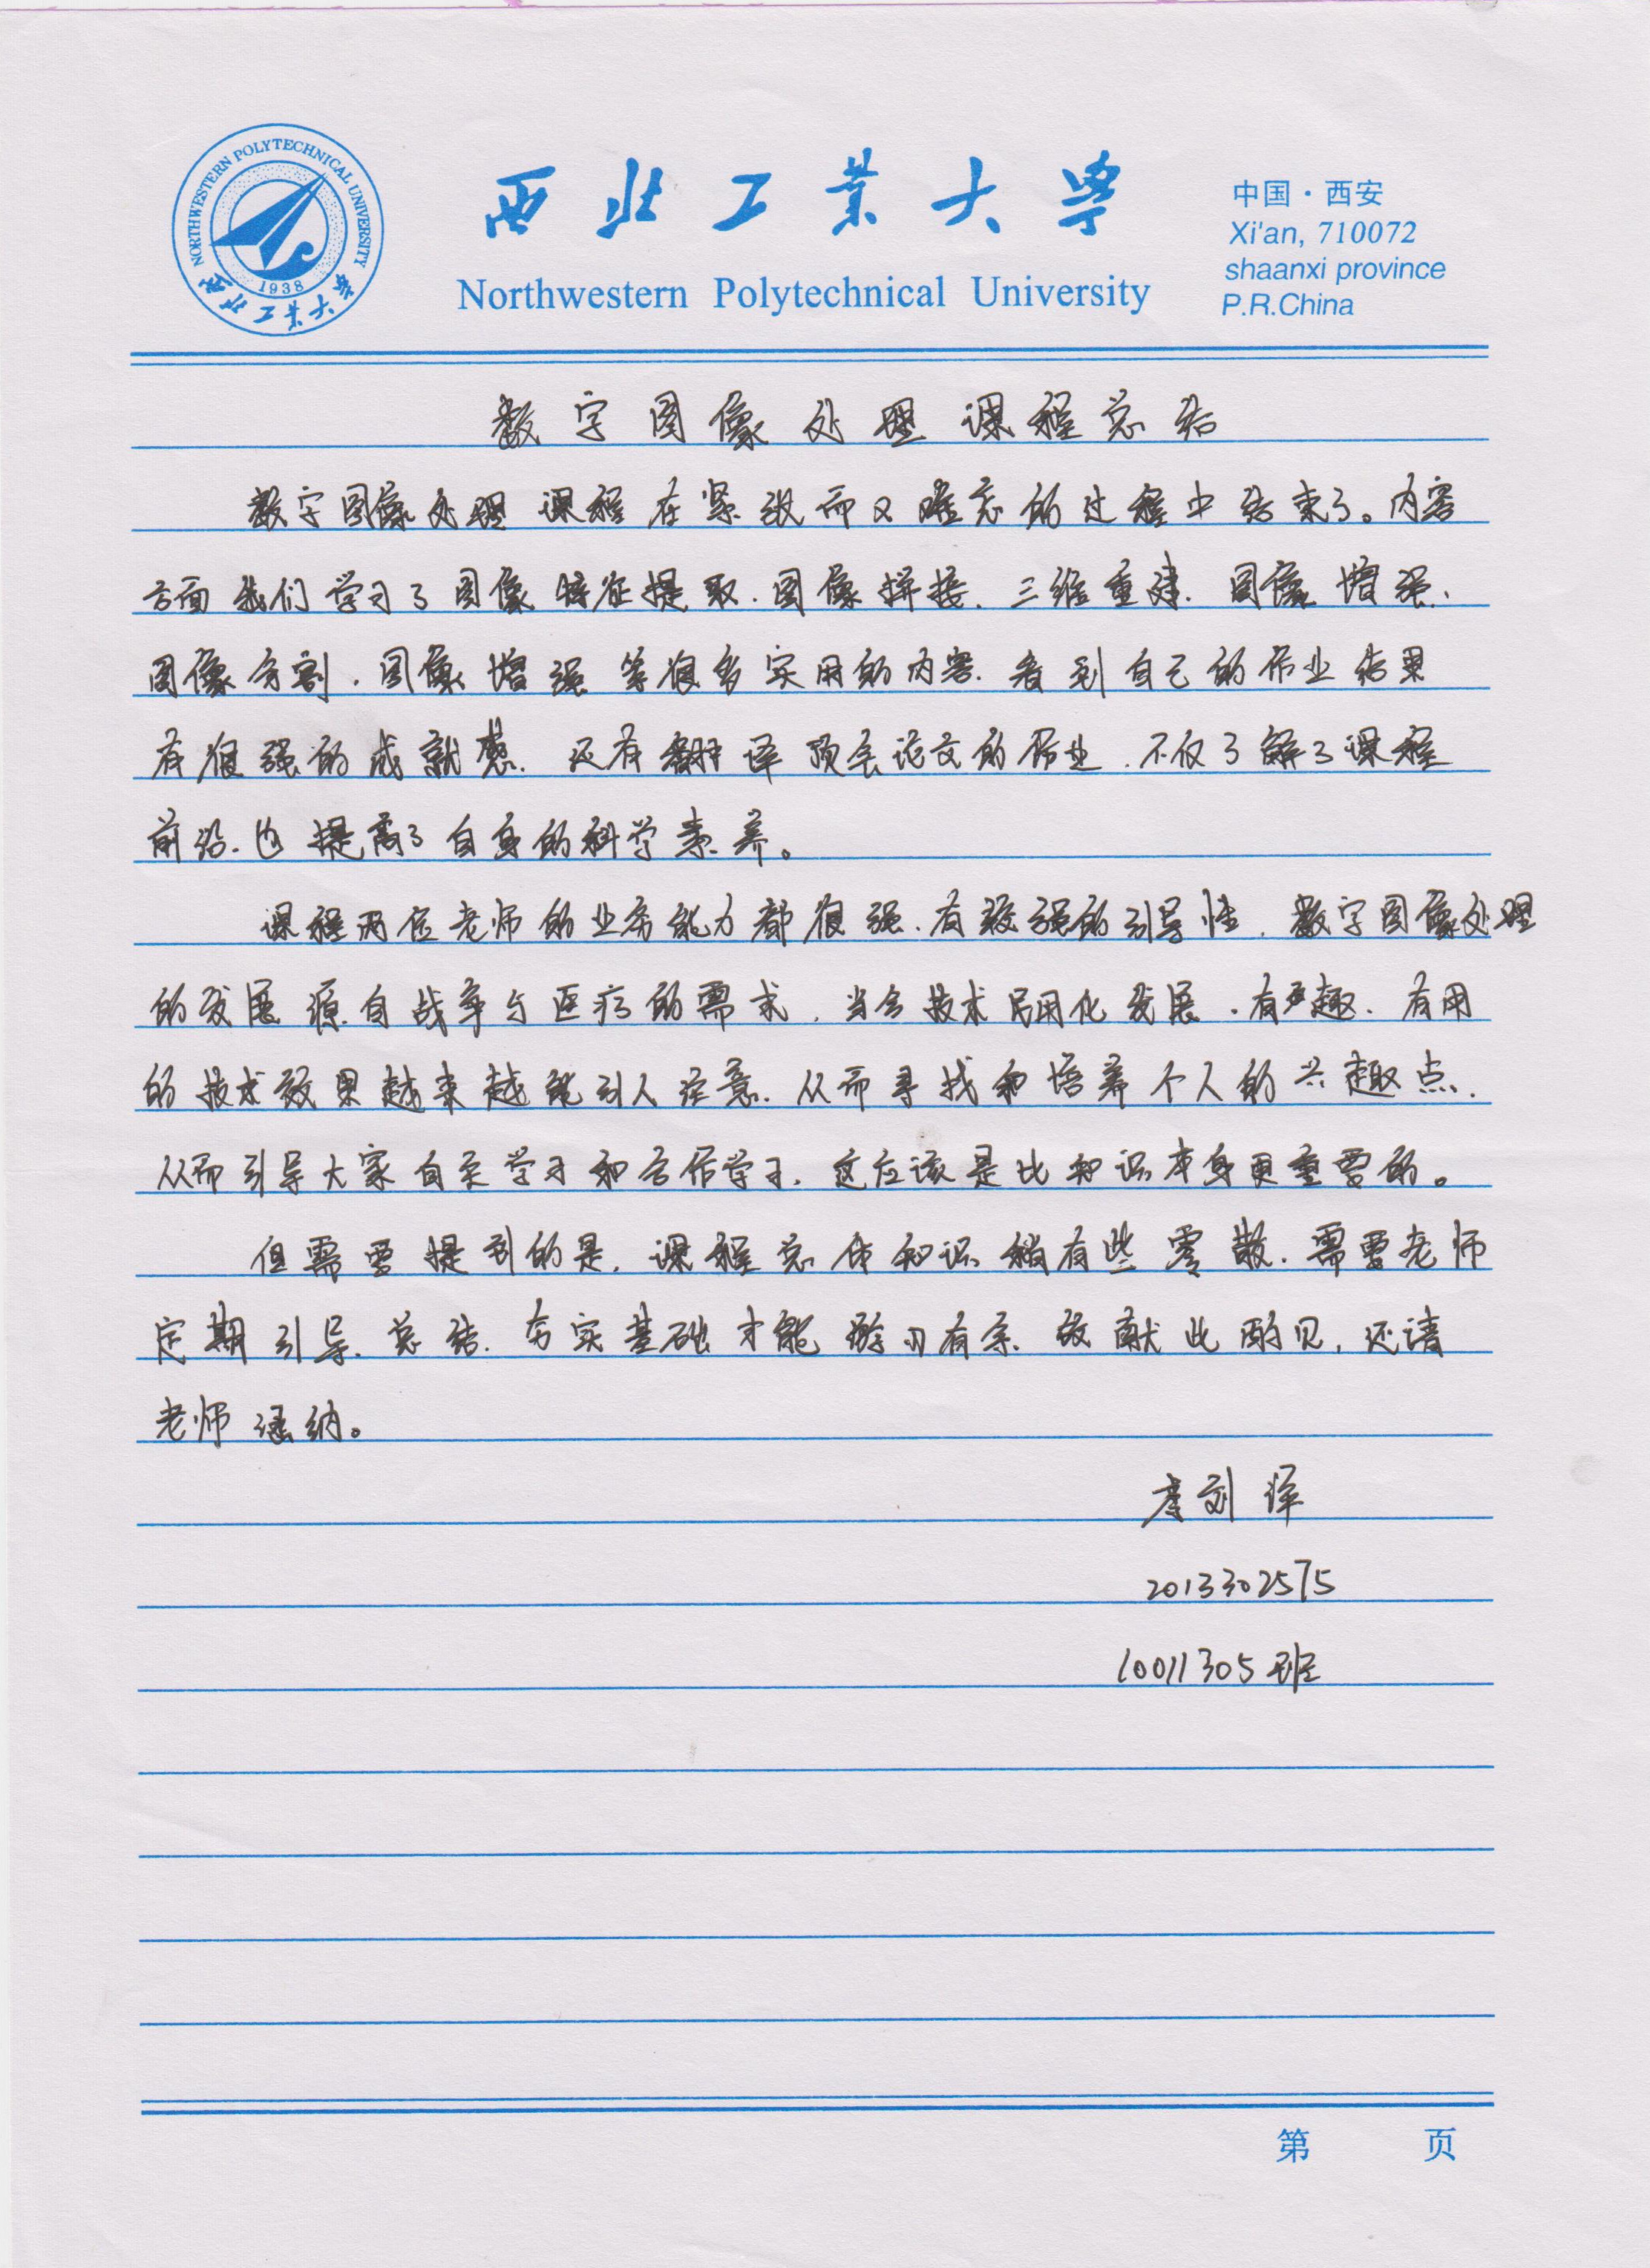 NORTHWESTERN POLYTECHNICAL UNIVERSITY
1938
西北工业大学
西北工业大学
Northwestern Polytechnical University
中国·西安
Xi'an, 710072
shaanxi province
P.R.China
数字图像处理课程总结
数字图像处理课程在紧张而又难忘的过程中结束了。内容
方面我们学习了图像特征提取、图像拼接、三维重建、图像增强、
图像分割、图像增强等很多实用的内容，看到自己的作业结果
有很强的成就感，还有翻译顶会论文的作业，不仅了解了课程
前沿，也提高了自身的科学素养。
课程两位老师的业务能力都很强，有较强的引导性，数字图像处理
的发展源自战争与医疗的需求，当今技术民用化发展，有趣、有用
的技术效果越来越能引人注意，从而寻找和培养个人的兴趣点，
从而引导大家自主学习和合作学习，这应该是比知识本身更重要的。
但需要提到的是，课程总体知识稍有些零散，需要老师
定期引导、总结，夯实基础才能游刃有余，故献此陋见，还请
老师 纳。
刘泽
2013302575
10011305班
第 页